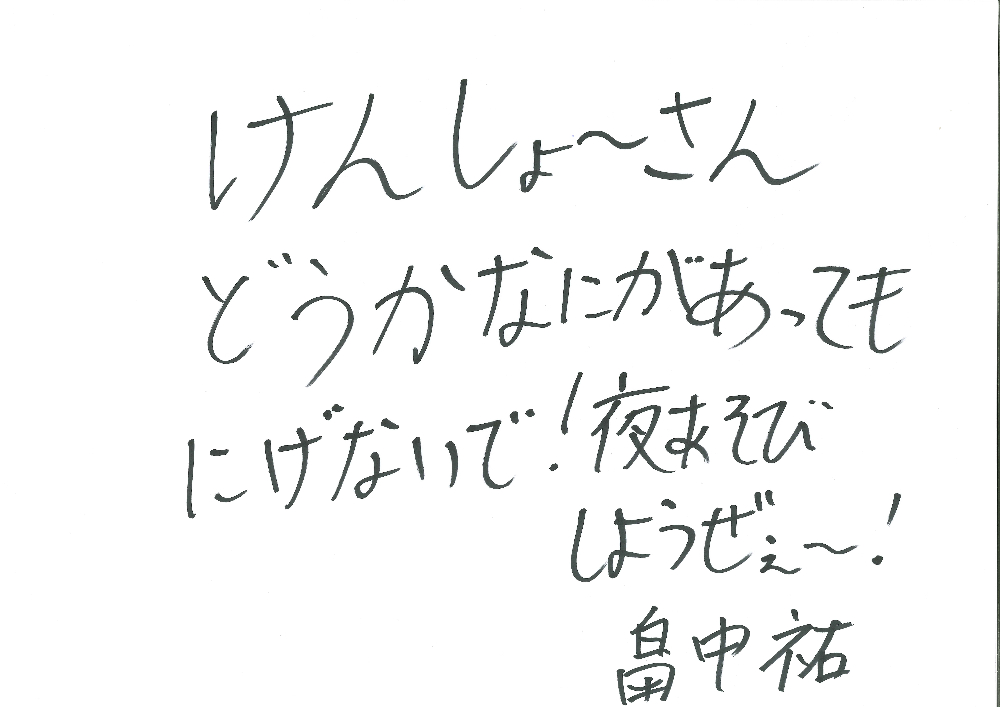 けんしょ〜さん
どうかなにがあっても
にげないで!夜あそび
しようぜぇ〜!
畠中祐